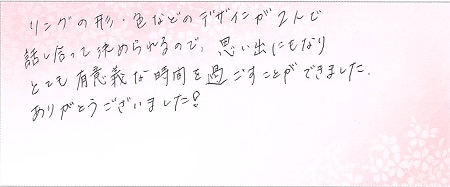 リングの形・色などのデザインが2人で
話し合って決められるので、思い出にもなり
とても有意義な時間を過ごすことができました.
ありがとうございました!